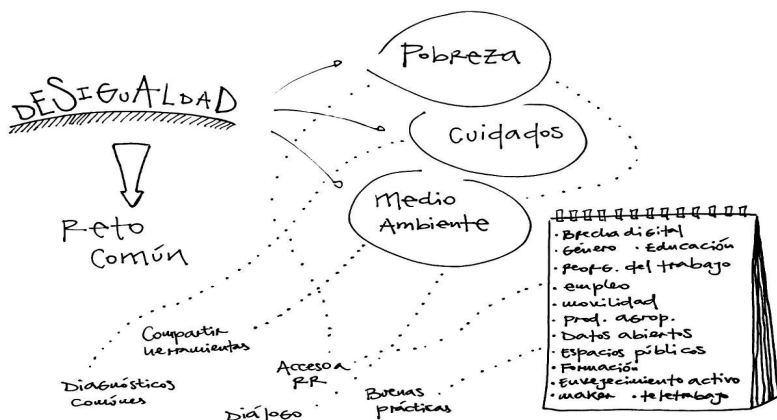 DESIGUALDAD
Reto
Común
Pobreza
Cuidados
Medio
Ambiente
Compartir
herramientas
Diagnósticos
comúnes
Acceso a
RR
Diálogo
Buenas
prácticas
· Brecha digital
· Género · Educación
· Reorg. del trabajo
· empleo
· movilidad
· Prod. agrop.
· Datos abiertos
· Espacios públicos
· Formación
· Envejecimiento activo
· maker · teletrabajo